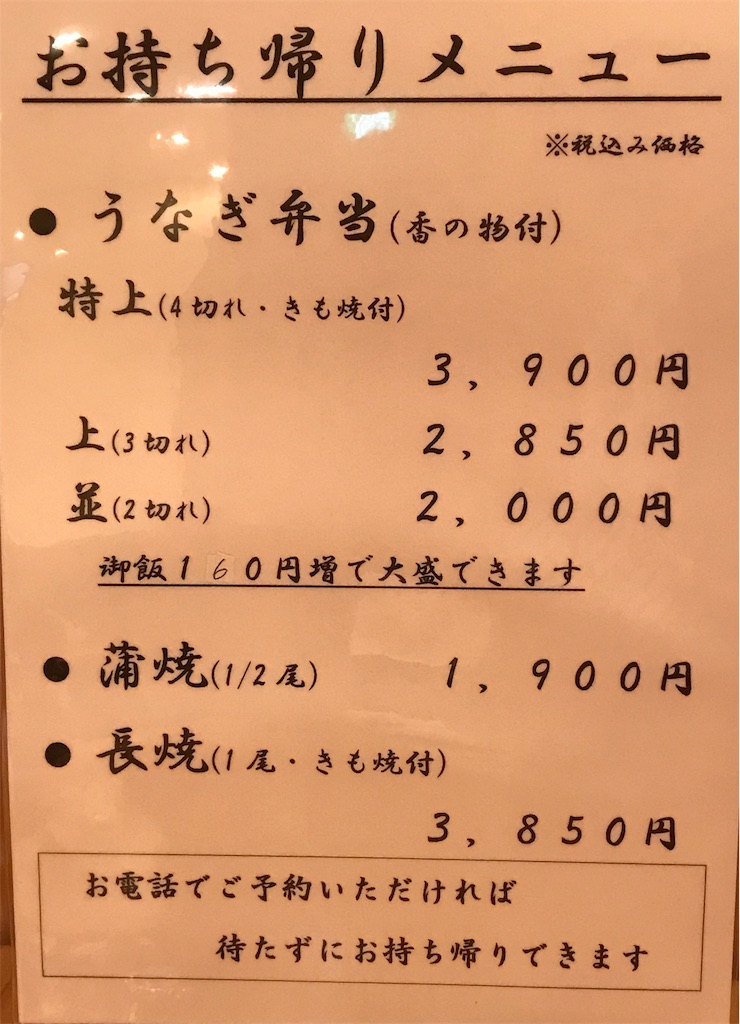 お持ち帰りメニュー
※税込み価格
● うなぎ弁当(香の物付)
特上(4切れ・きも焼付)
3,900円
上(3切れ) 2,850円
並(2切れ) 2,000円
御飯160円増で大盛できます
● 蒲焼(1/2尾) 1,900円
● 長焼(1尾・きも焼付)
3,850円
お電話でご予約いただければ
待たずにお持ち帰りできます